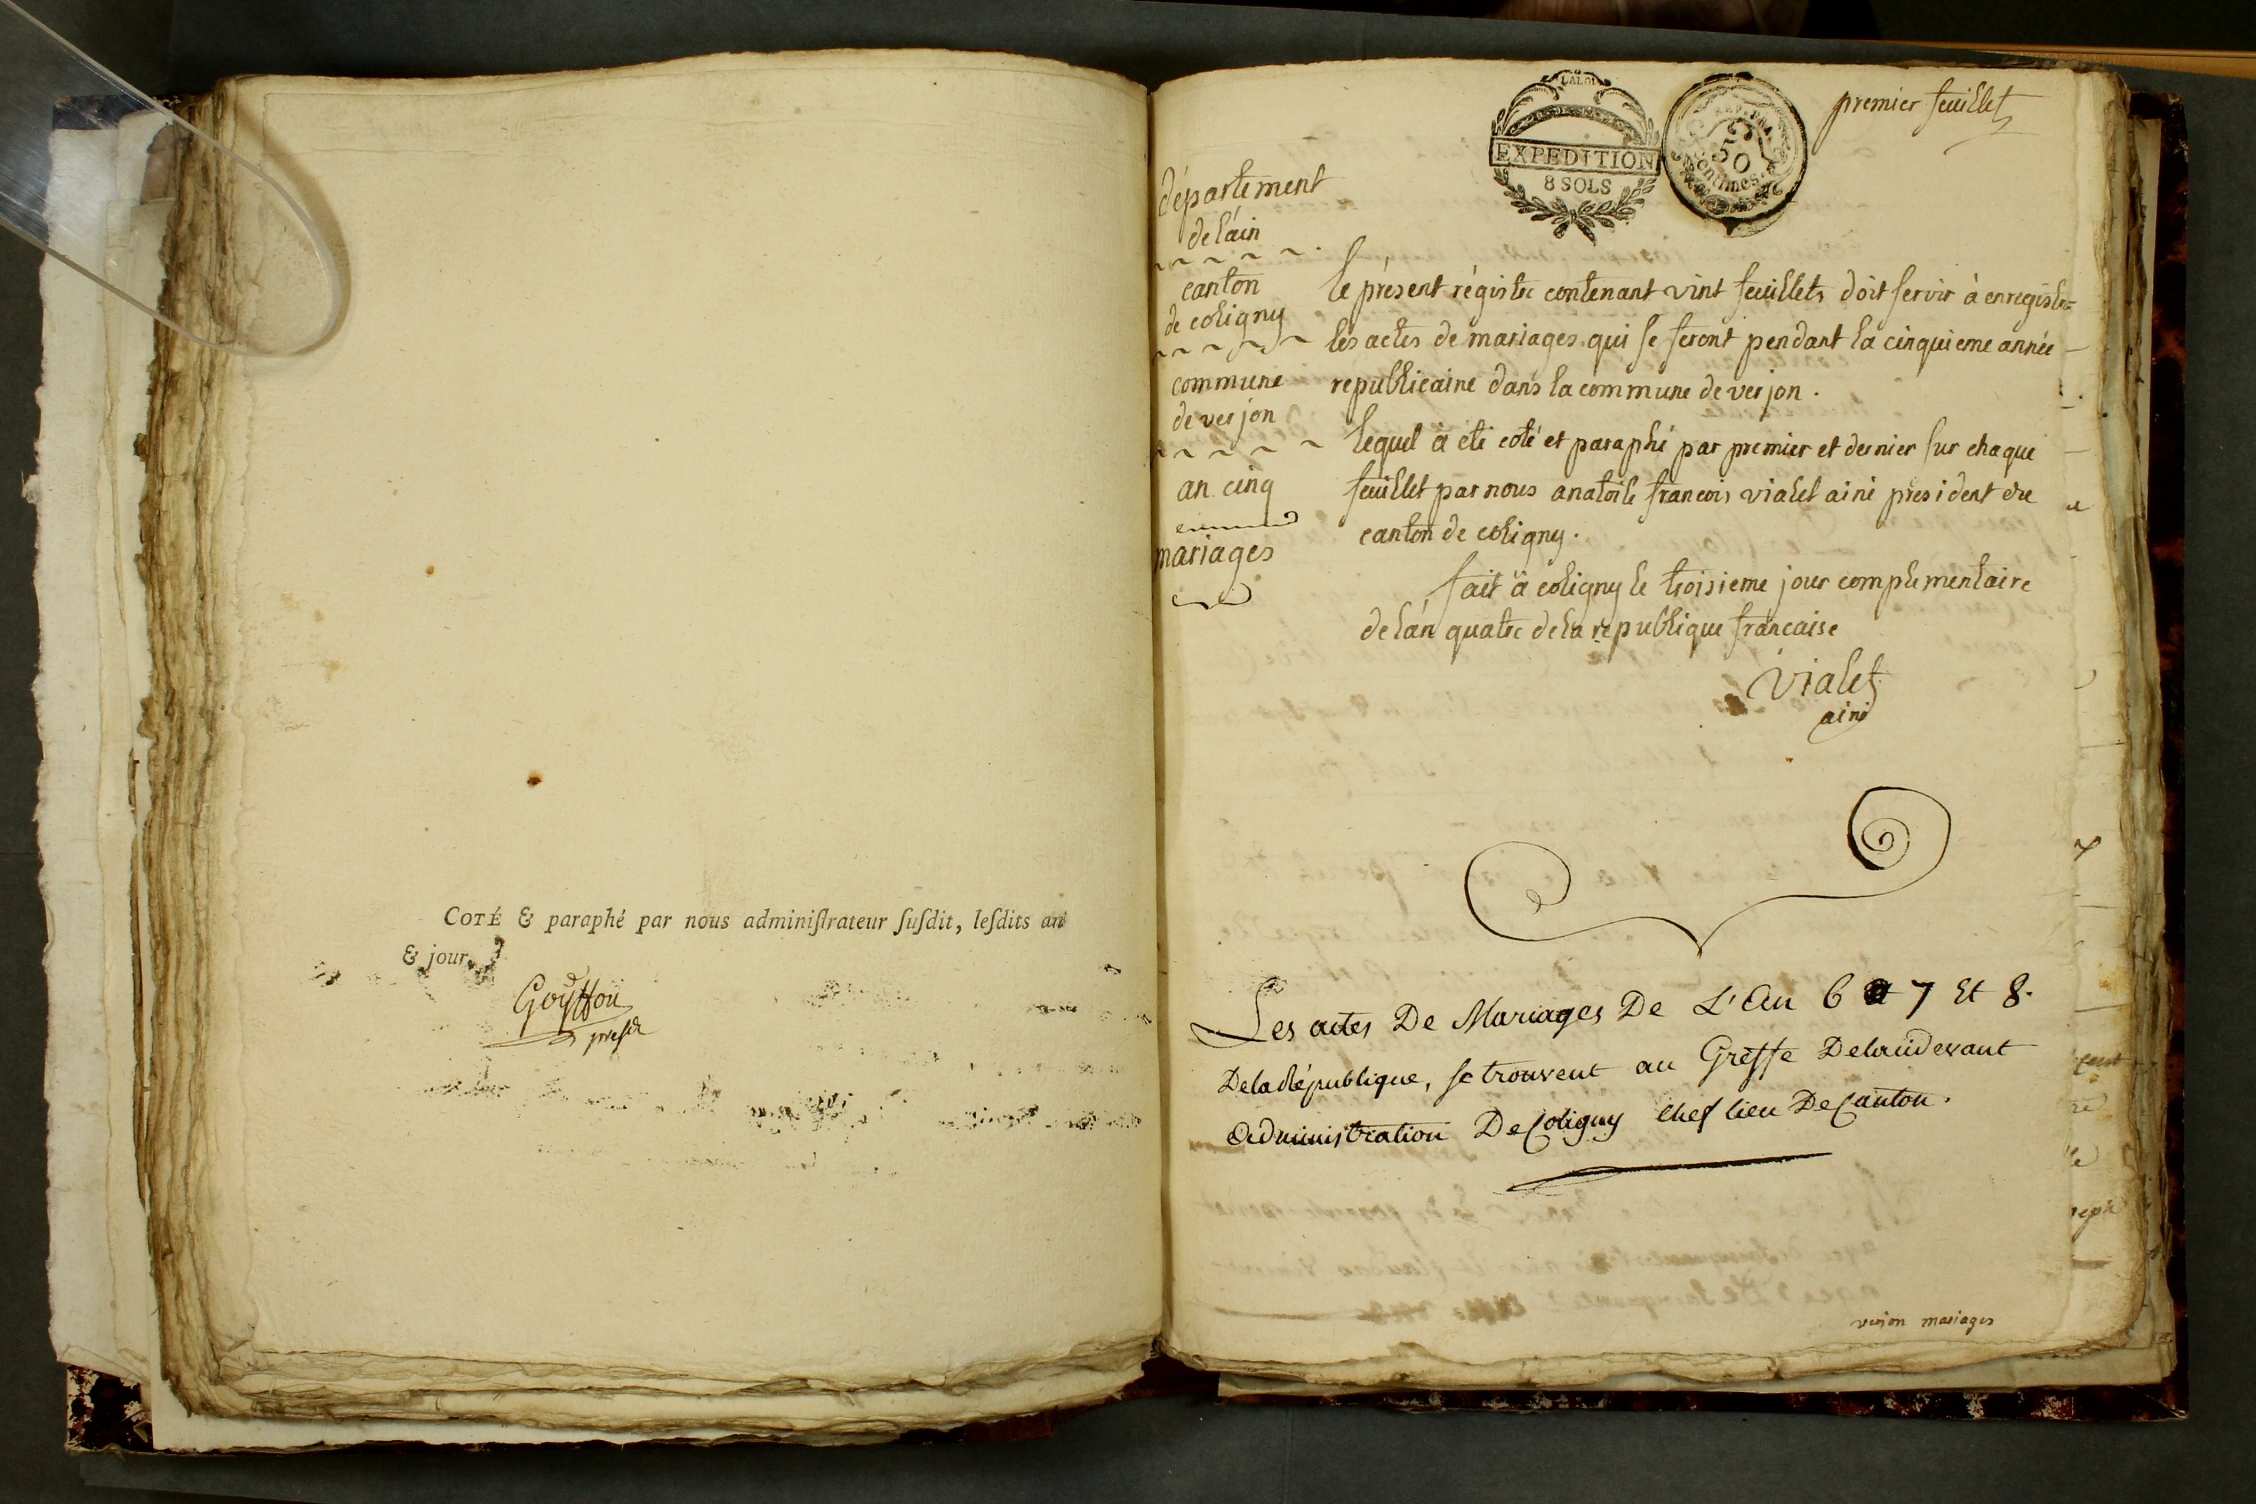 COTÉ & paraphé par nous adminiſtrateur ſuſdit, leſdits an
& jour
Goyffon
presdt
LA LOI
EXPEDITION
8 SOLS
REP. FRA.
50
Centimes.
premier feuillet
département
de láin
canton
de coligny
commune
de verjon
an cinq
mariages
le présent régistre contenant vint feuillets doit servir à enregistre
les actes de mariages qui se feront pendant la cinquieme année
republicaine dans la commune de verjon.
lequel à été coté et paraphé par premier et dernier sur chaque
feuillet par nous anatoile francois vialet ainé president du
canton de coligny.
fait à coligny le troisieme jour complementaire
de lán quatre de la republique francaise
vialet
ainé
Les actes De Mariages De L'An 6 7 Et 8.
De la République, se trouvent au Greffe De la cidevant
Administration De Coligny Chef lieu De Canton.
verjon mariages